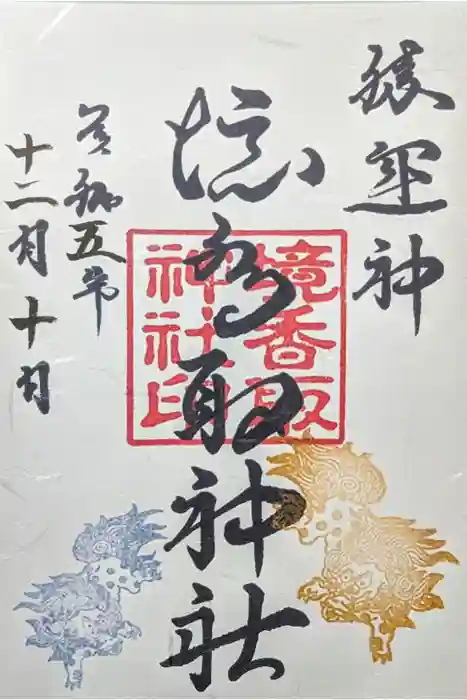 運神
境香取神社
令和五年
十二月十日
境香取
神社印